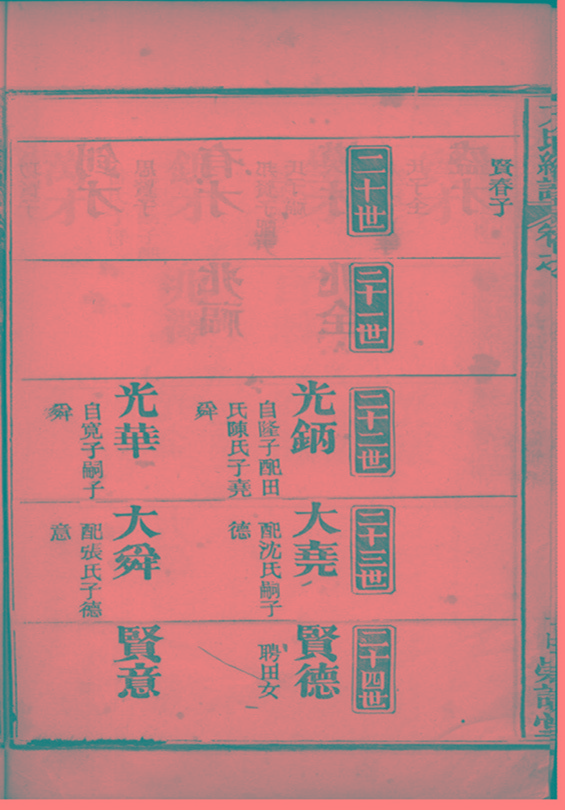 賢春子
二十世
二十一世
二十二世
二十三世
二十四世
光鈵
自隆子配田
氏陳氏子堯
舜
大堯
配沈氏嗣子
德
賢德
聘田女
光華
自寬子嗣子
舜
大舜
配張氏子德
意
賢意